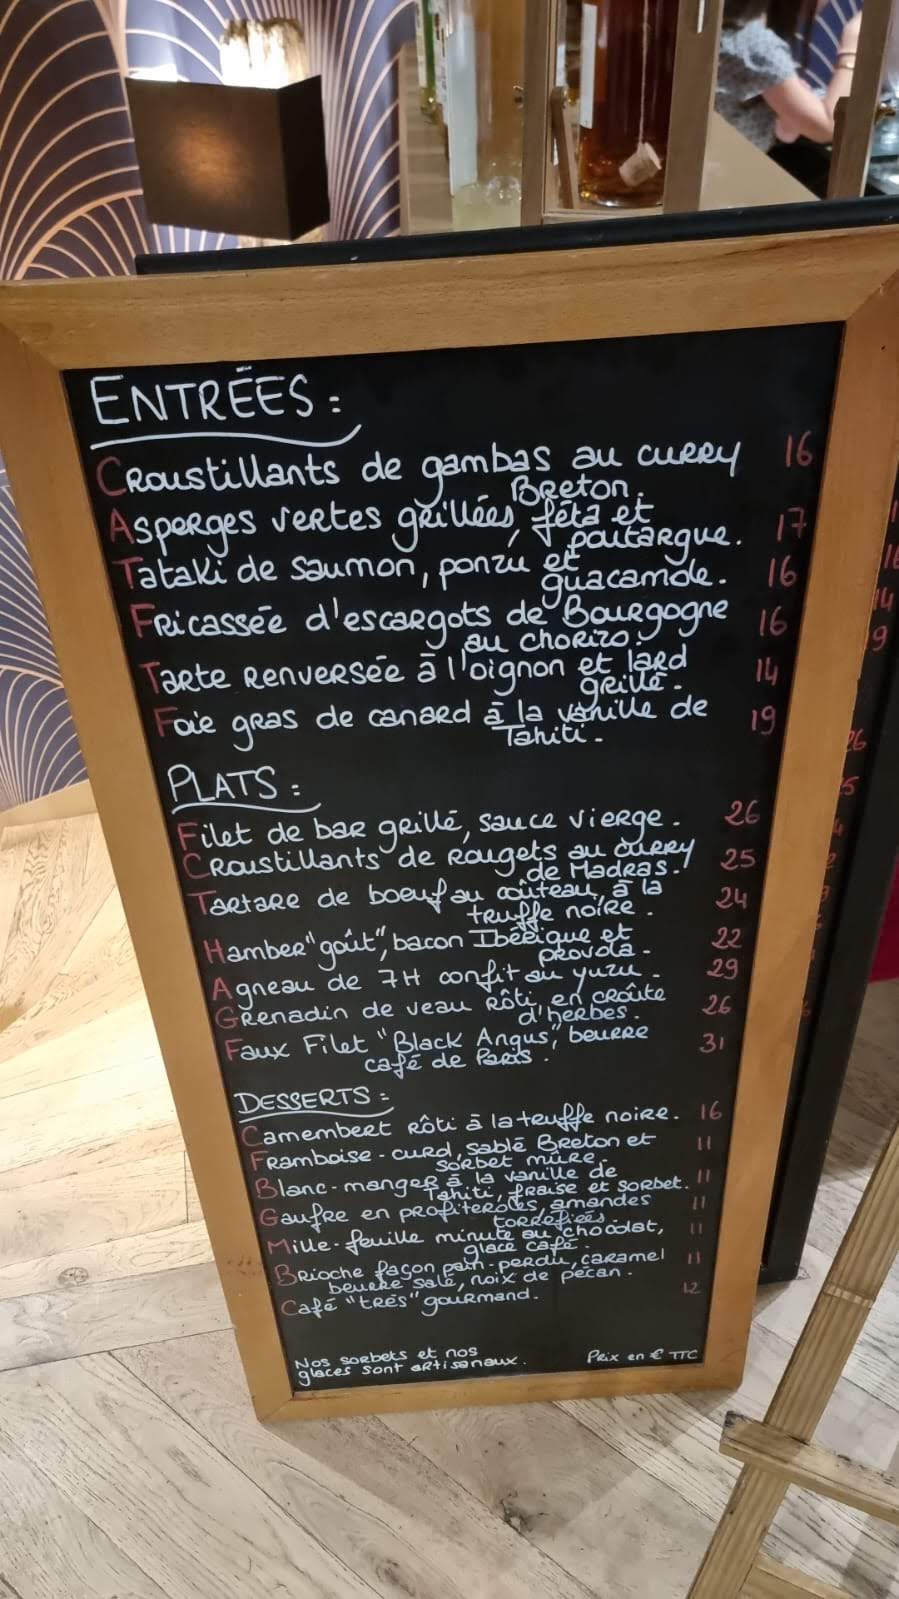 ENTRÉES :
Croustillants de gambas au curry 16
Breton.
Asperges vertes grillées, féta et 17
poutargue.
Tataki de saumon, ponzu et 16
guacamole.
Fricassée d'escargots de Bourgogne 16
au chorizo.
Tarte renversée à l'oignon et lard 14
grillé.
Foie gras de canard à la vanille de 19
Tahiti.
PLATS :
Filet de bar grillé, sauce vierge. 26
Croustillants de rougets au curry 25
de Madras.
Tartare de boeuf au couteau, à la 24
truffe noire.
Hamber "goût", bacon Ibérique et 22
provola.
Agneau de 7H confit au yuzu. 29
Grenadin de veau rôti, en croûte 26
d'herbes.
Faux Filet "Black Angus", beurre 31
café de Paris.
DESSERTS :
Camembert rôti à la truffe noire. 16
Framboise-curd, sablé Breton et 11
sorbet mûre.
Blanc-manger à la vanille de 11
Tahiti, fraise et sorbet.
Gaufre en profiteroles, amandes 11
torrefiées.
Mille-feuille minute au chocolat, 11
glace café.
Brioche façon pain-perdu, caramel 11
beurre salé, noix de pécan.
Café "très" gourmand. 12
Nos sorbets et nos
glaces sont artisanaux.
Prix en € TTC